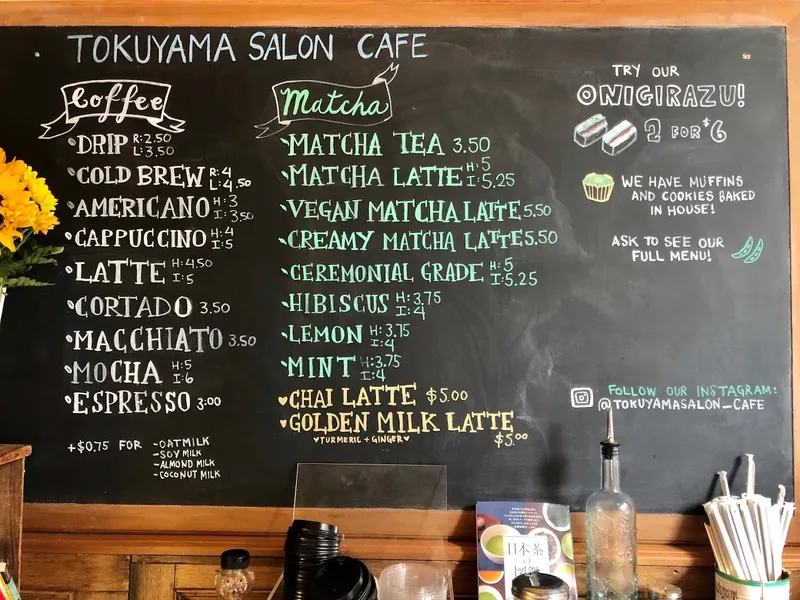 TOKUYAMA SALON CAFE
Coffee
DRIP R: 2.50
L: 3.50
COLD BREW R: 4
L: 4.50
AMERICANO H: 3
I: 3.50
CAPPUCCINO H: 4
I: 5
LATTE H: 4.50
I: 5
CORTADO 3.50
MACCHIATO 3.50
MOCHA H: 5
I: 6
ESPRESSO 3:00
+$0.75 FOR -OATMILK
-SOY MILK
-ALMOND MILK
-COCONUT MILK
Matcha
MATCHA TEA 3.50
MATCHA LATTE H: 5
I: 5.25
VEGAN MATCHA LATTE 5.50
CREAMY MATCHA LATTE 5.50
CEREMONIAL GRADE H: 5
I: 5.25
HIBISCUS H: 3.75
I: 4
LEMON H: 3.75
I: 4
MINT H: 3.75
I: 4
CHAI LATTE $5.00
GOLDEN MILK LATTE
♥TURMERIC + GINGER♥ $5.00
TRY OUR
ONIGIRAZU!
2 FOR $6
WE HAVE MUFFINS
AND COOKIES BAKED
IN HOUSE!
ASK TO SEE OUR
FULL MENU!
FOLLOW OUR INSTAGRAM:
@TOKUYAMASALON_CAFE
日本茶
の